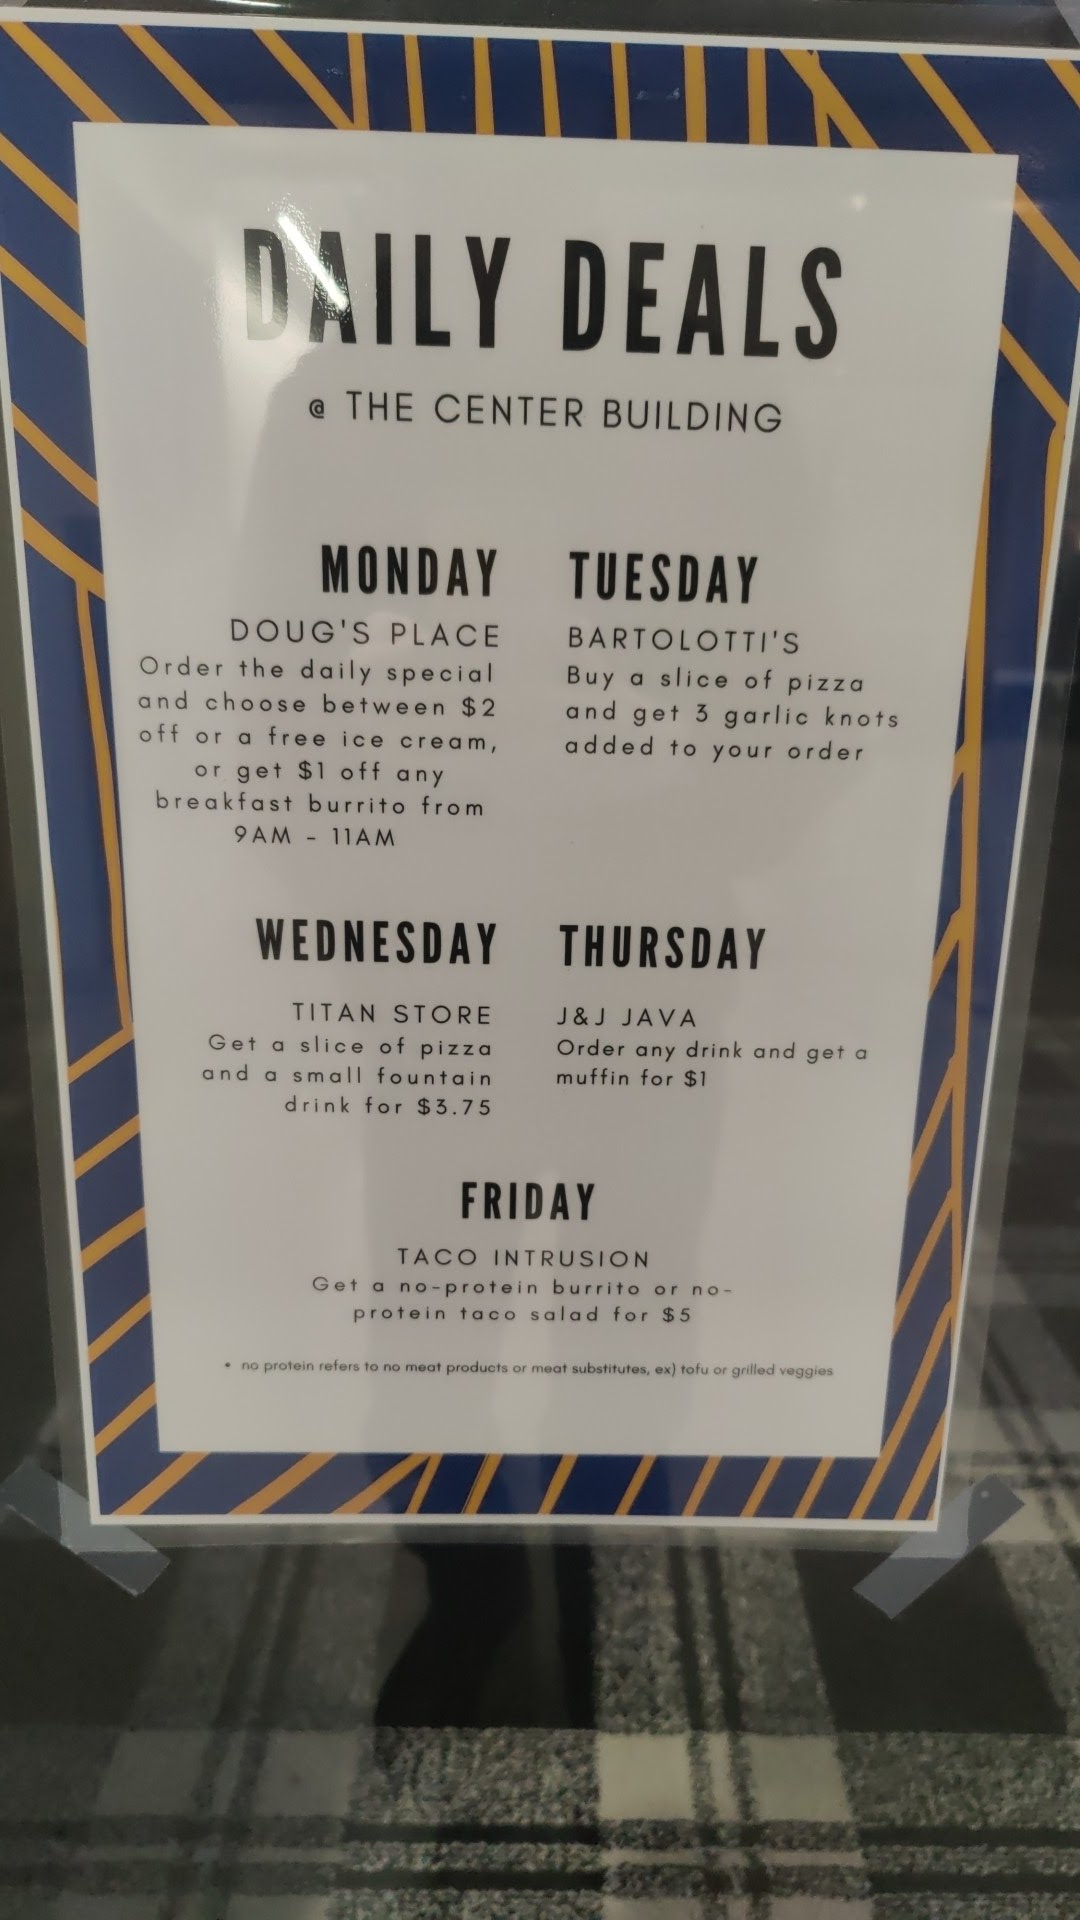 DAILY DEALS
@ THE CENTER BUILDING
MONDAY
DOUG'S PLACE
Order the daily special
and choose between $2
off or a free ice cream,
or get $1 off any
breakfast burrito from
9AM - 11AM
TUESDAY
BARTOLOTTI'S
Buy a slice of pizza
and get 3 garlic knots
added to your order
WEDNESDAY
TITAN STORE
Get a slice of pizza
and a small fountain
drink for $3.75
THURSDAY
J&J JAVA
Order any drink and get a
muffin for $1
FRIDAY
TACO INTRUSION
Get a no-protein burrito or no-
protein taco salad for $5
• no protein refers to no meat products or meat substitutes, ex) tofu or grilled veggies